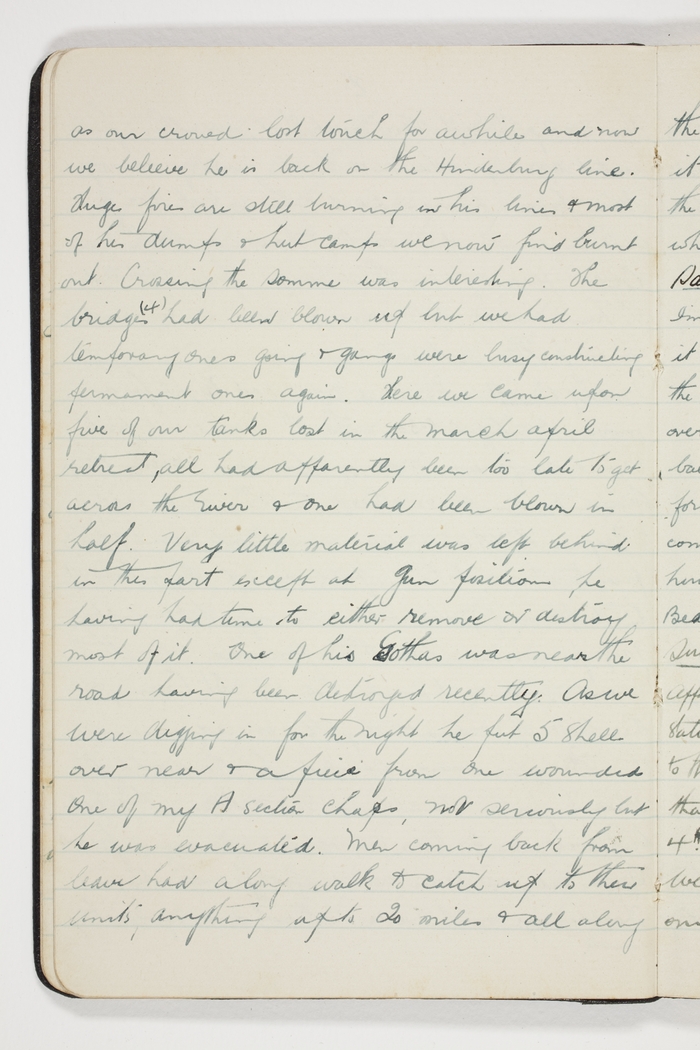 as our crowd lost touch for awhile and now
we believe he is back on the Hindenburg line.
Huge fires are still burning in his lines & most
of his dumps & hut camps we now find burnt
out. Crossing the Somme was interesting. The
bridges (4) had been blown up but we had
temporary ones going & gangs were busy constructing
permanent ones again. Here we came upon
five of our tanks lost in the march april
retreat, all had apparently been too late to get
across the river & one had been blown in
half. Very little material was left behind
in this part except at Gun positions he
having had time to either remove or destroy
most of it. One of his Gothas was near the
road having been destroyed recently. As we
were digging in for the night he put 5 shells
over near & a piece from one wounded
one of my A section chaps, not seriously but
he was evacuated. Men coming back from
leave had a long walk to catch up to their
units, anything up to 20 miles & all along
the
it
the
it
the
over
for
to th
tha
we